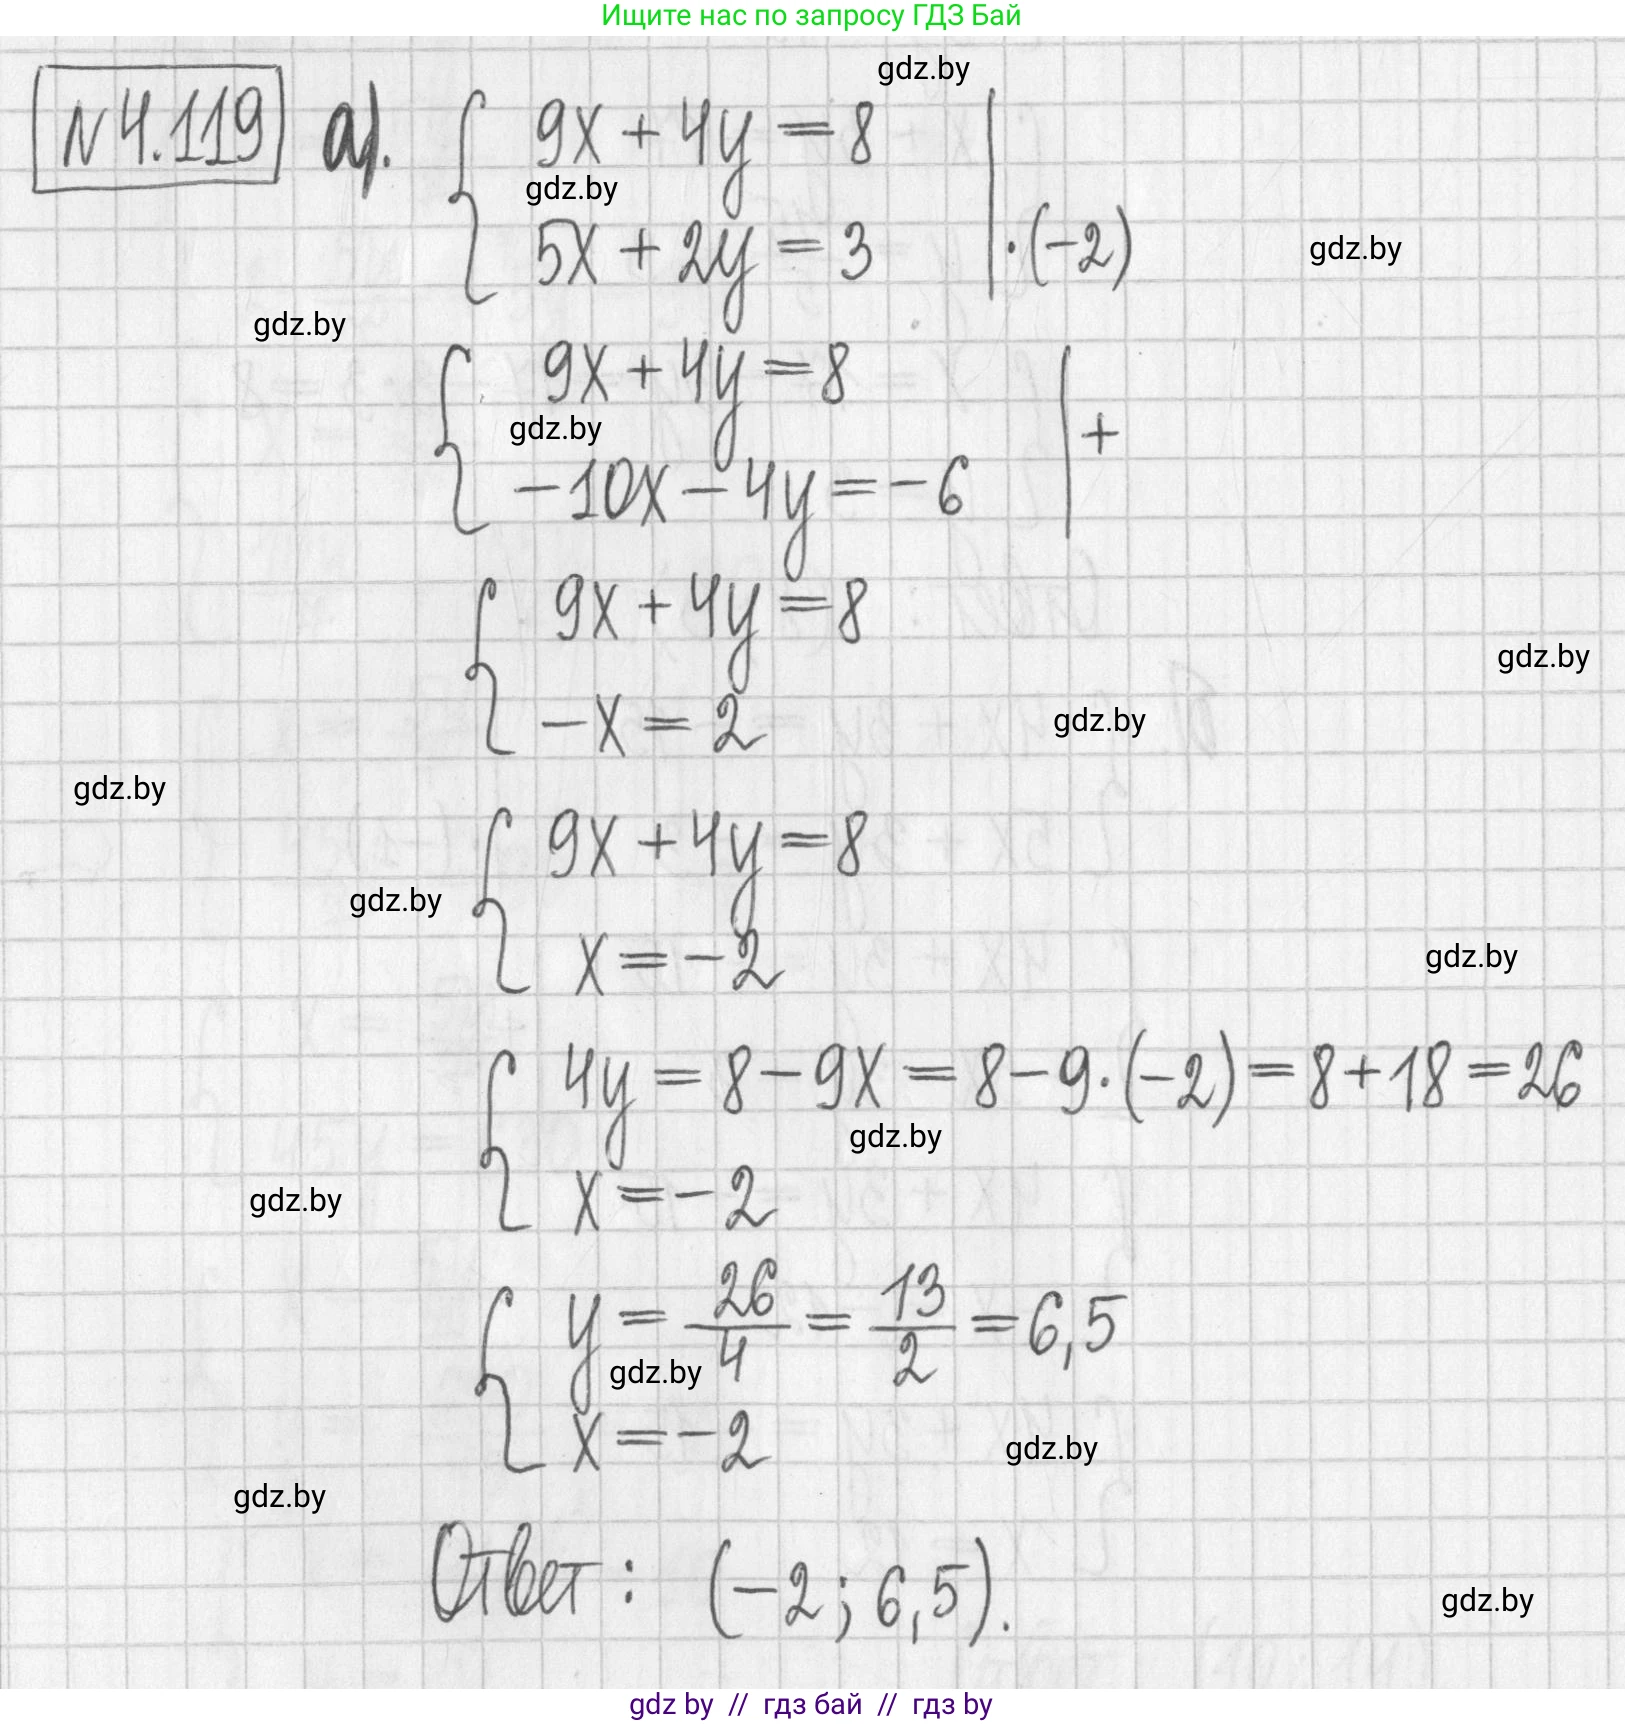 Ищите нас по запросу ГДЗ Бай
gdz.by
N4.119 а). { 9x + 4y = 8 |
gdz.by
5x + 2y = 3 | ·(-2)
gdz.by
gdz.by
{ 9x + 4y = 8 | +
gdz.by
-10x - 4y = -6
{ 9x + 4y = 8
gdz.by
-x = 2
gdz.by
gdz.by
{ 9x + 4y = 8
gdz.by
x = -2
gdz.by
{ 4y = 8 - 9x = 8 - 9·(-2) = 8 + 18 = 26
gdz.by
x = -2
gdz.by
{ y = 26/4 = 13/2 = 6,5
gdz.by
x = -2
gdz.by
gdz.by
Ответ: (-2; 6,5).
gdz.by
gdz by // гдз бай // гдз by